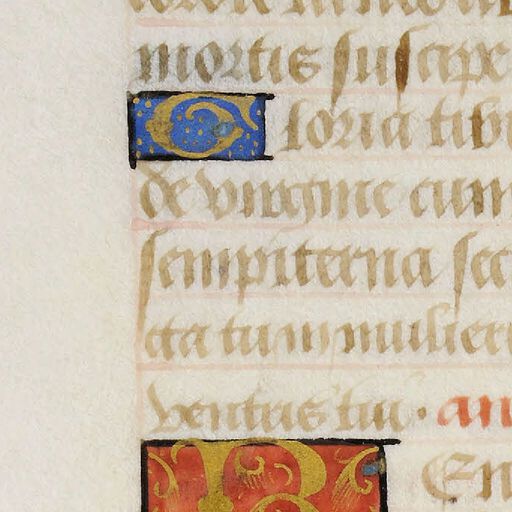 mortis suscipe
Gloria tibi
de virgine cum
sempiterna sec
cta tu in mulieri
ventris tui. an
B En